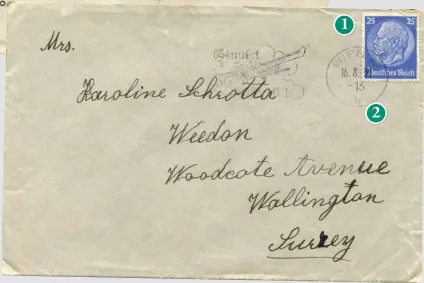 1
25 25
Deutsches Reich
Mrs.
16.8.
-15
2
Karoline Schrotta
Weedon
Woodcote Avenue
Wallington
Surrey